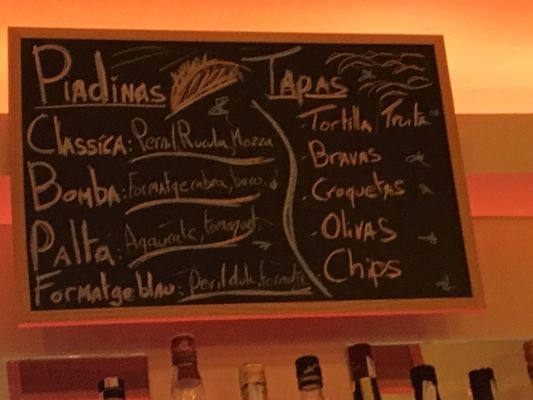 Piadinas
Classica: Pernil, Rucula, Mozza
Bomba: Formatge cabra, baco
Palta: Aguacate, tomaquet
Formatge blau: Pernil dulc, formatge
Tapas
Tortilla / Truita
Bravas
Croquetas
Olivas
Chips